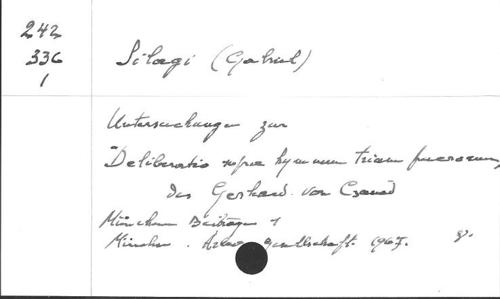 242
336
1
Silagi (Gabriel)
Untersuchungen zur
"Deliberatio supra hymnum trium puerorum"
des Gerhard von Csanad
München Beiträge 1
München. Arbeo Gesellschaft. 1967. 8°.